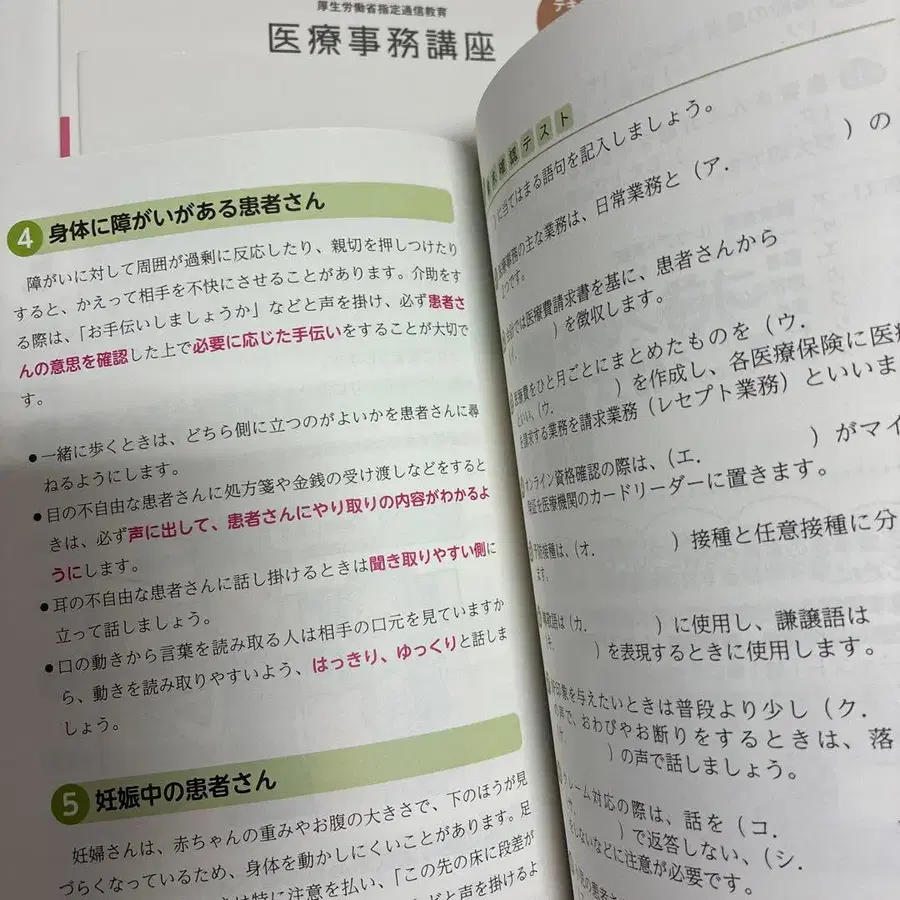 厚生労働省指定通信教育
医療事務講座
4 身体に障がいがある患者さん
障がいに対して周囲が過剰に反応したり、親切を押しつけたり
すると、かえって相手を不快にさせることがあります。介助をす
る際は、「お手伝いしましょうか」などと声を掛け、必ず患者さ
んの意思を確認した上で必要に応じた手伝いをすることが大切で
す。
●一緒に歩くときは、どちら側に立つのがよいかを患者さんに尋
ねるようにします。
●目の不自由な患者さんに処方箋や金銭の受け渡しなどをすると
きは、必ず声に出して、患者さんにやり取りの内容がわかるよ
うにします。
●耳の不自由な患者さんに話し掛けるときは聞き取りやすい側に
立って話しましょう。
●口の動きから言葉を読み取る人は相手の口元を見ていますか
ら、動きを読み取りやすいよう、はっきり、ゆっくりと話しま
しょう。
5 妊娠中の患者さん
妊婦さんは、赤ちゃんの重みやお腹の大きさで、下のほうが見
づらくなっているため、身体を動かしにくいことがあります。足
は特に注意を払い、「この先の床に段差が
どと声を掛けるよ
確認テスト
）に当てはまる語句を記入しましょう。
医療事務の主な業務は、日常業務と（ア. ）の
つです。
では医療費請求書を基に、患者さんから
（イ. ）を徴収します。
医療費をひと月ごとにまとめたものを（ウ.
といい、（ウ. ）を作成し、各医療保険に医療
を請求する業務を請求業務（レセプト業務）といいま
オンライン資格確認の際は、（エ. ）がマイ
険証を医療機関のカードリーダーに置きます。
予防接種は、（オ. ）接種と任意接種に分
ます。
尊敬語は（カ. ）に使用し、謙譲語は
（キ. ）を表現するときに使用します。
好印象を与えたいときは普段より少し（ク.
の声で、おわびやお断りをするときは、落
（ケ. ）の声で話しましょう。
クレーム対応の際は、話を（コ.
）で返答しない、（シ.
をしないなどに注意が必要です。